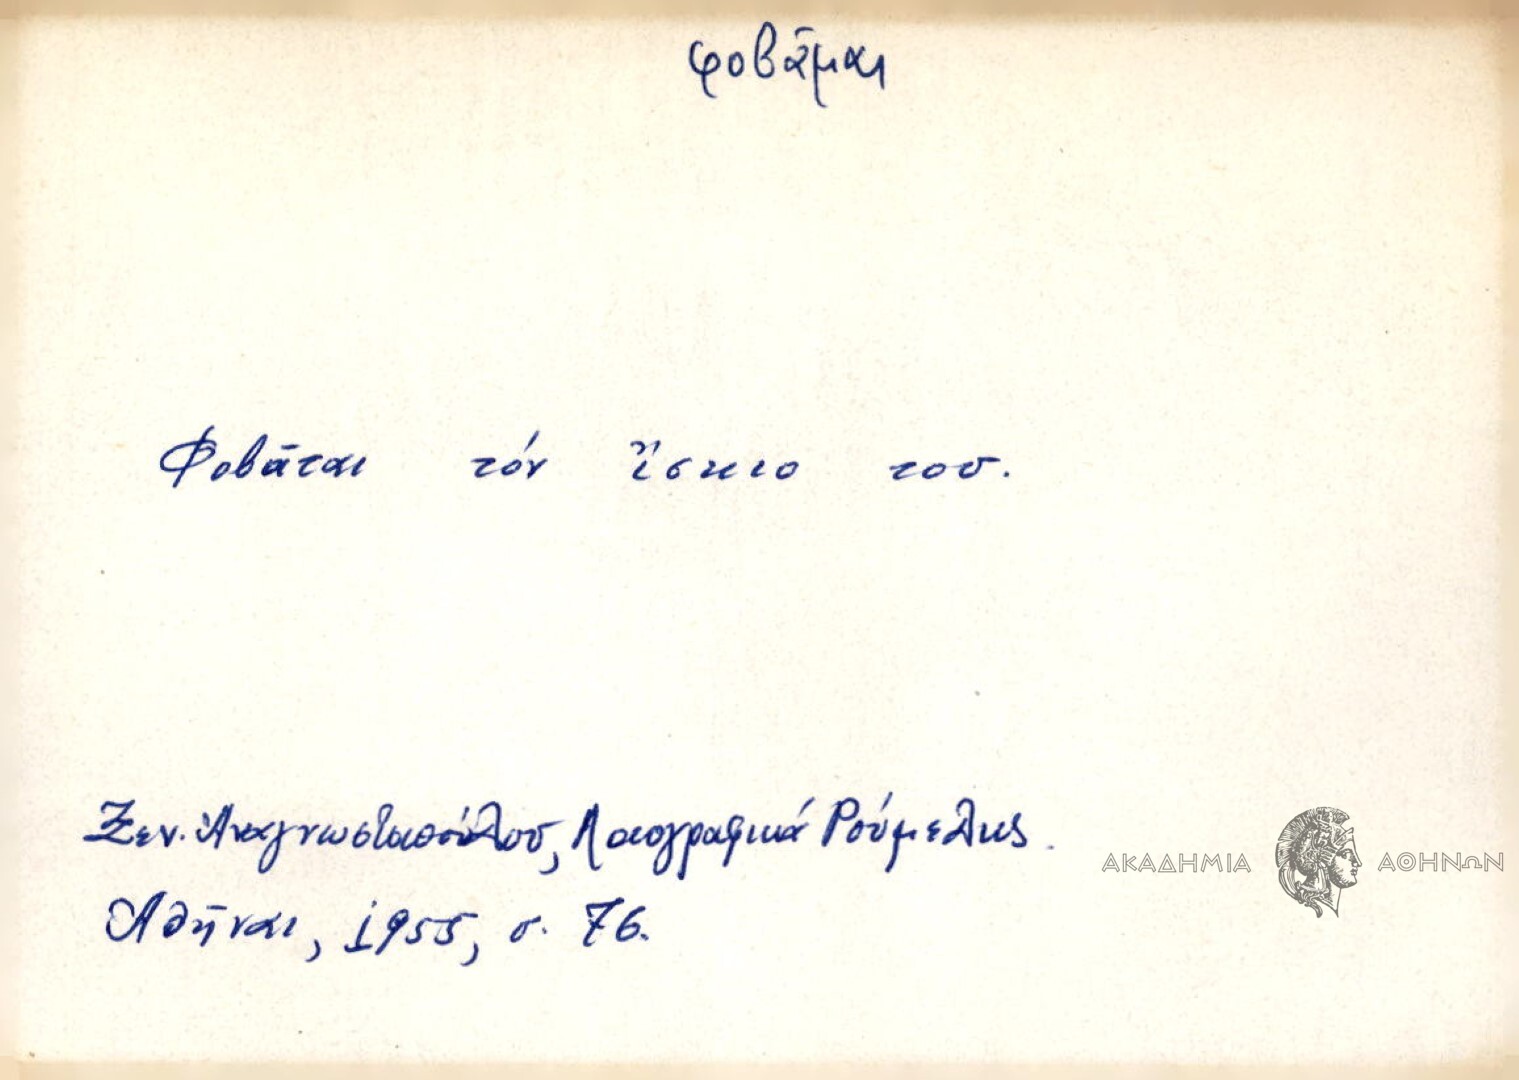 φοβᾶμαι
Φοβᾶται τόν ἴσκιο του.
Ξεν. Ἀναγνωστοπούλου, Λαογραφικά Ρούμελης.
Ἀθῆναι, 1955, σ. 76.
ΑΚΑΔΗΜΙΑ ΑΘΗΝΩΝ